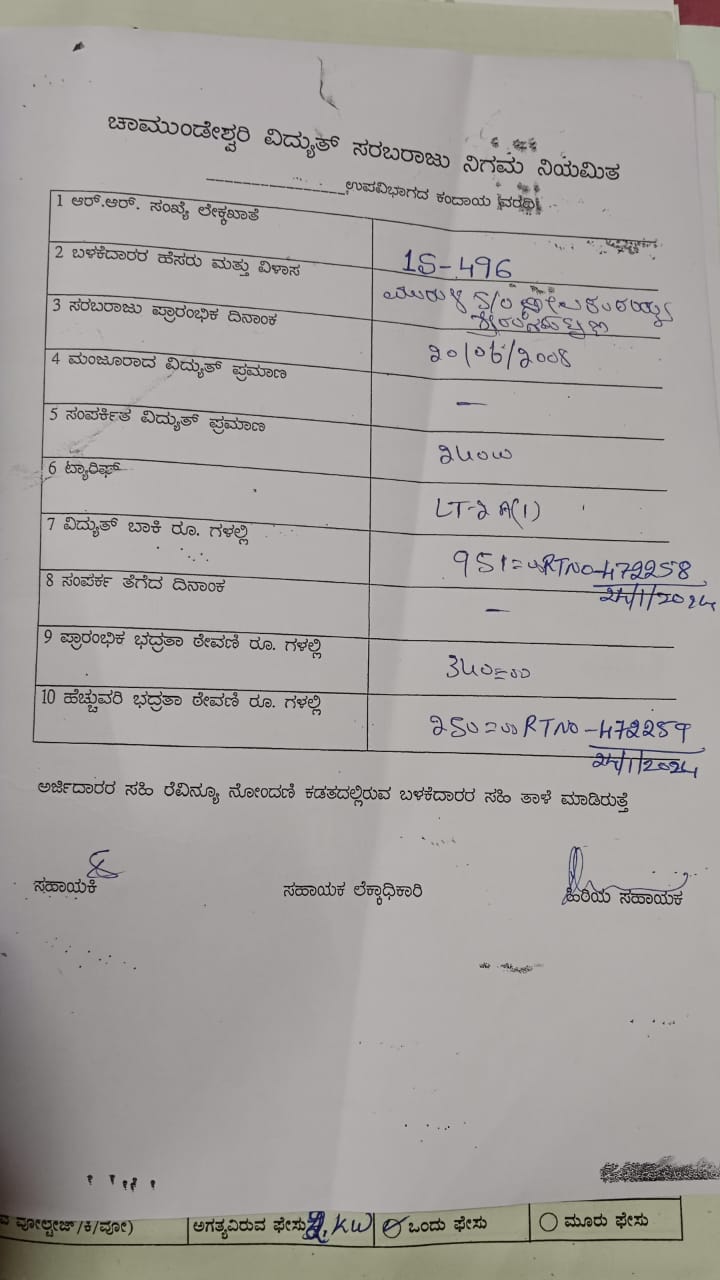 ಚಾಮುಂಡೇಶ್ವರಿ ವಿದ್ಯುತ್ ಸರಬರಾಜು ನಿಗಮ ನಿಯಮಿತ
____________ಉಪವಿಭಾಗದ ಕಂದಾಯ ವರದಿ
1 ಆರ್.ಆರ್. ಸಂಖ್ಯೆ ಲೇಕ್ಕಖಾತೆ
1S-496
2 ಬಳಕೆದಾರರ ಹೆಸರು ಮತ್ತು ವಿಳಾಸ
ಮುರುಳಿ S/O
3 ಸರಬರಾಜು ಪ್ರಾರಂಭಿಕ ದಿನಾಂಕ
20/06/2008
4 ಮಂಜೂರಾದ ವಿದ್ಯುತ್ ಪ್ರಮಾಣ
—
5 ಸಂಪರ್ಕಿತ ವಿದ್ಯುತ್ ಪ್ರಮಾಣ
240W
6 ಟ್ಯಾರಿಫ್
LT-2 A(1)
7 ವಿದ್ಯುತ್ ಬಾಕಿ ರೂ. ಗಳಲ್ಲಿ
951=00 RTNO-472258
24/1/2024
8 ಸಂಪರ್ಕ ತೆಗೆದ ದಿನಾಂಕ
—
9 ಪ್ರಾರಂಭಿಕ ಭದ್ರತಾ ಠೇವಣಿ ರೂ. ಗಳಲ್ಲಿ
340=00
10 ಹೆಚ್ಚುವರಿ ಭದ್ರತಾ ಠೇವಣಿ ರೂ. ಗಳಲ್ಲಿ
250=00 RTNO-472259
24/1/2024
ಅರ್ಜಿದಾರರ ಸಹಿ ರೆವಿನ್ಯೂ ನೋಂದಣಿ ಕಡತದಲ್ಲಿರುವ ಬಳಕೆದಾರರ ಸಹಿ ತಾಳೆ ಮಾಡಿರುತ್ತೆ
ಸಹಾಯಕಿ ಸಹಾಯಕ ಲೆಕ್ಕಾಧಿಕಾರಿ ಹಿರಿಯ ಸಹಾಯಕ
ವೋಲ್ಟೇಜ್/ಕಿ/ವೋ) ಅಗತ್ಯವಿರುವ ಫೇಸು KW ಒಂದು ಫೇಸು ಮೂರು ಫೇಸು